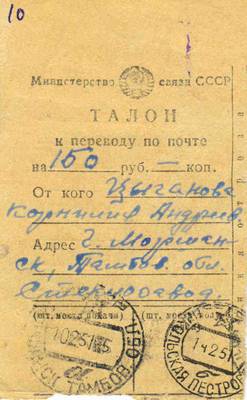 10
Министерство связи СССР
ТАЛОН
к переводу по почте
на 150 руб. — коп.
От кого Цыганова
Адрес г. Моршан-
ск, Тамбов. обл.
Стеклозавод.
(шт. места подачи) (шт. места
10251
ТАМБОВ. ОБЛ.
14251
ПЕСТРОВ